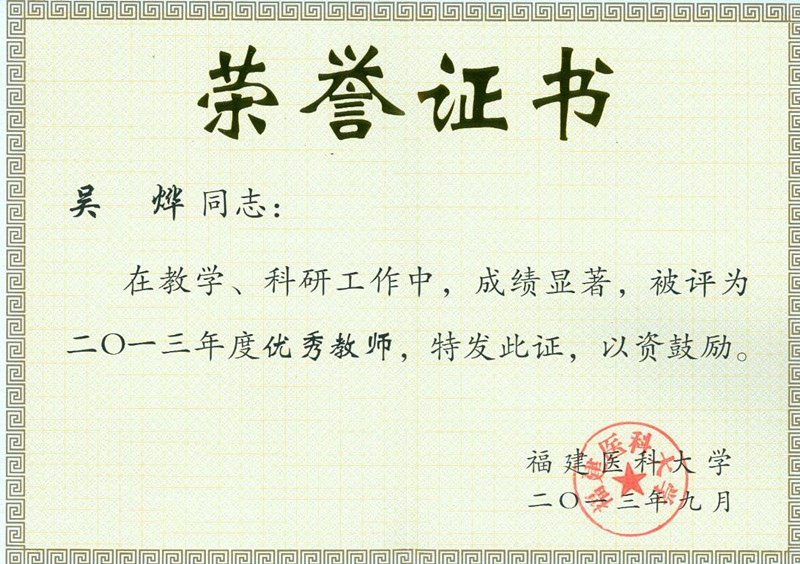 荣誉证书
吴 烨 同志：
在教学、科研工作中，成绩显著，被评为
二〇一三年度优秀教师，特发此证，以资鼓励。
福建医科大学
二〇一三年九月
福建医科大学